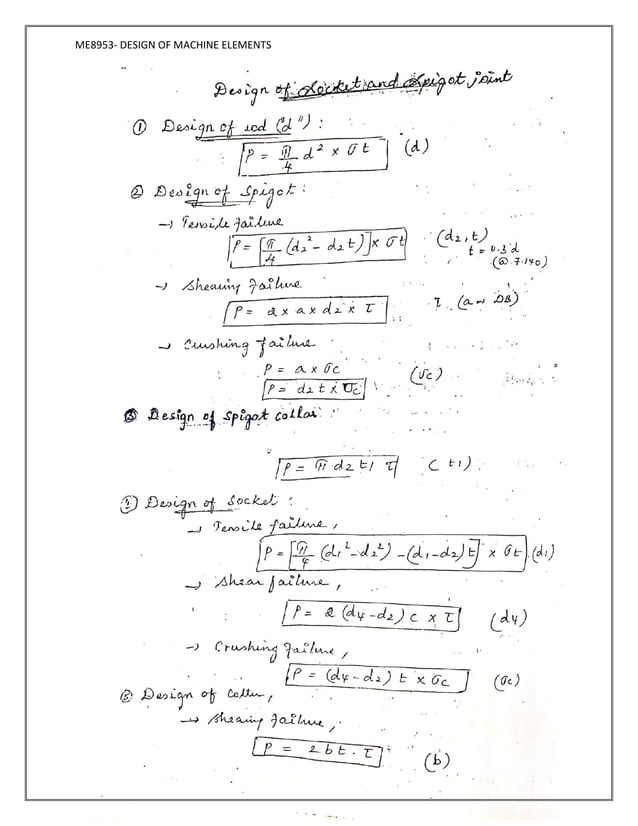 ME8953- DESIGN OF MACHINE ELEMENTS
Design of Socket and Spigot joint
① Design of rod ("d") :
P = π/4 d² × σt (d)
② Design of Spigot :
→ Tensile failure
P = [π/4 (d₂² - d₂t)] × σt (d₂, t)
t = 0.3d
(@ 7.140)
→ Shearing Failure
P = 2 × a × d₂ × τ (a → DB)
→ Crushing Failure
P = a × σc
P = d₂ t × σc (σc)
③ Design of Spigot Collar
P = π d₂ t₁ τ (t₁)
④ Design of Socket :
→ Tensile failure,
P = [π/4 (d₁² - d₂²) - (d₁ - d₂) t] × σt (d₁)
→ Shear failure,
P = 2 (d₄ - d₂) c × τ (d₄)
→ Crushing Failure,
P = (d₄ - d₂) t × σc (σc)
⑤ Design of Cotter,
→ Shearing Failure,
P = 2bt . τ (b)